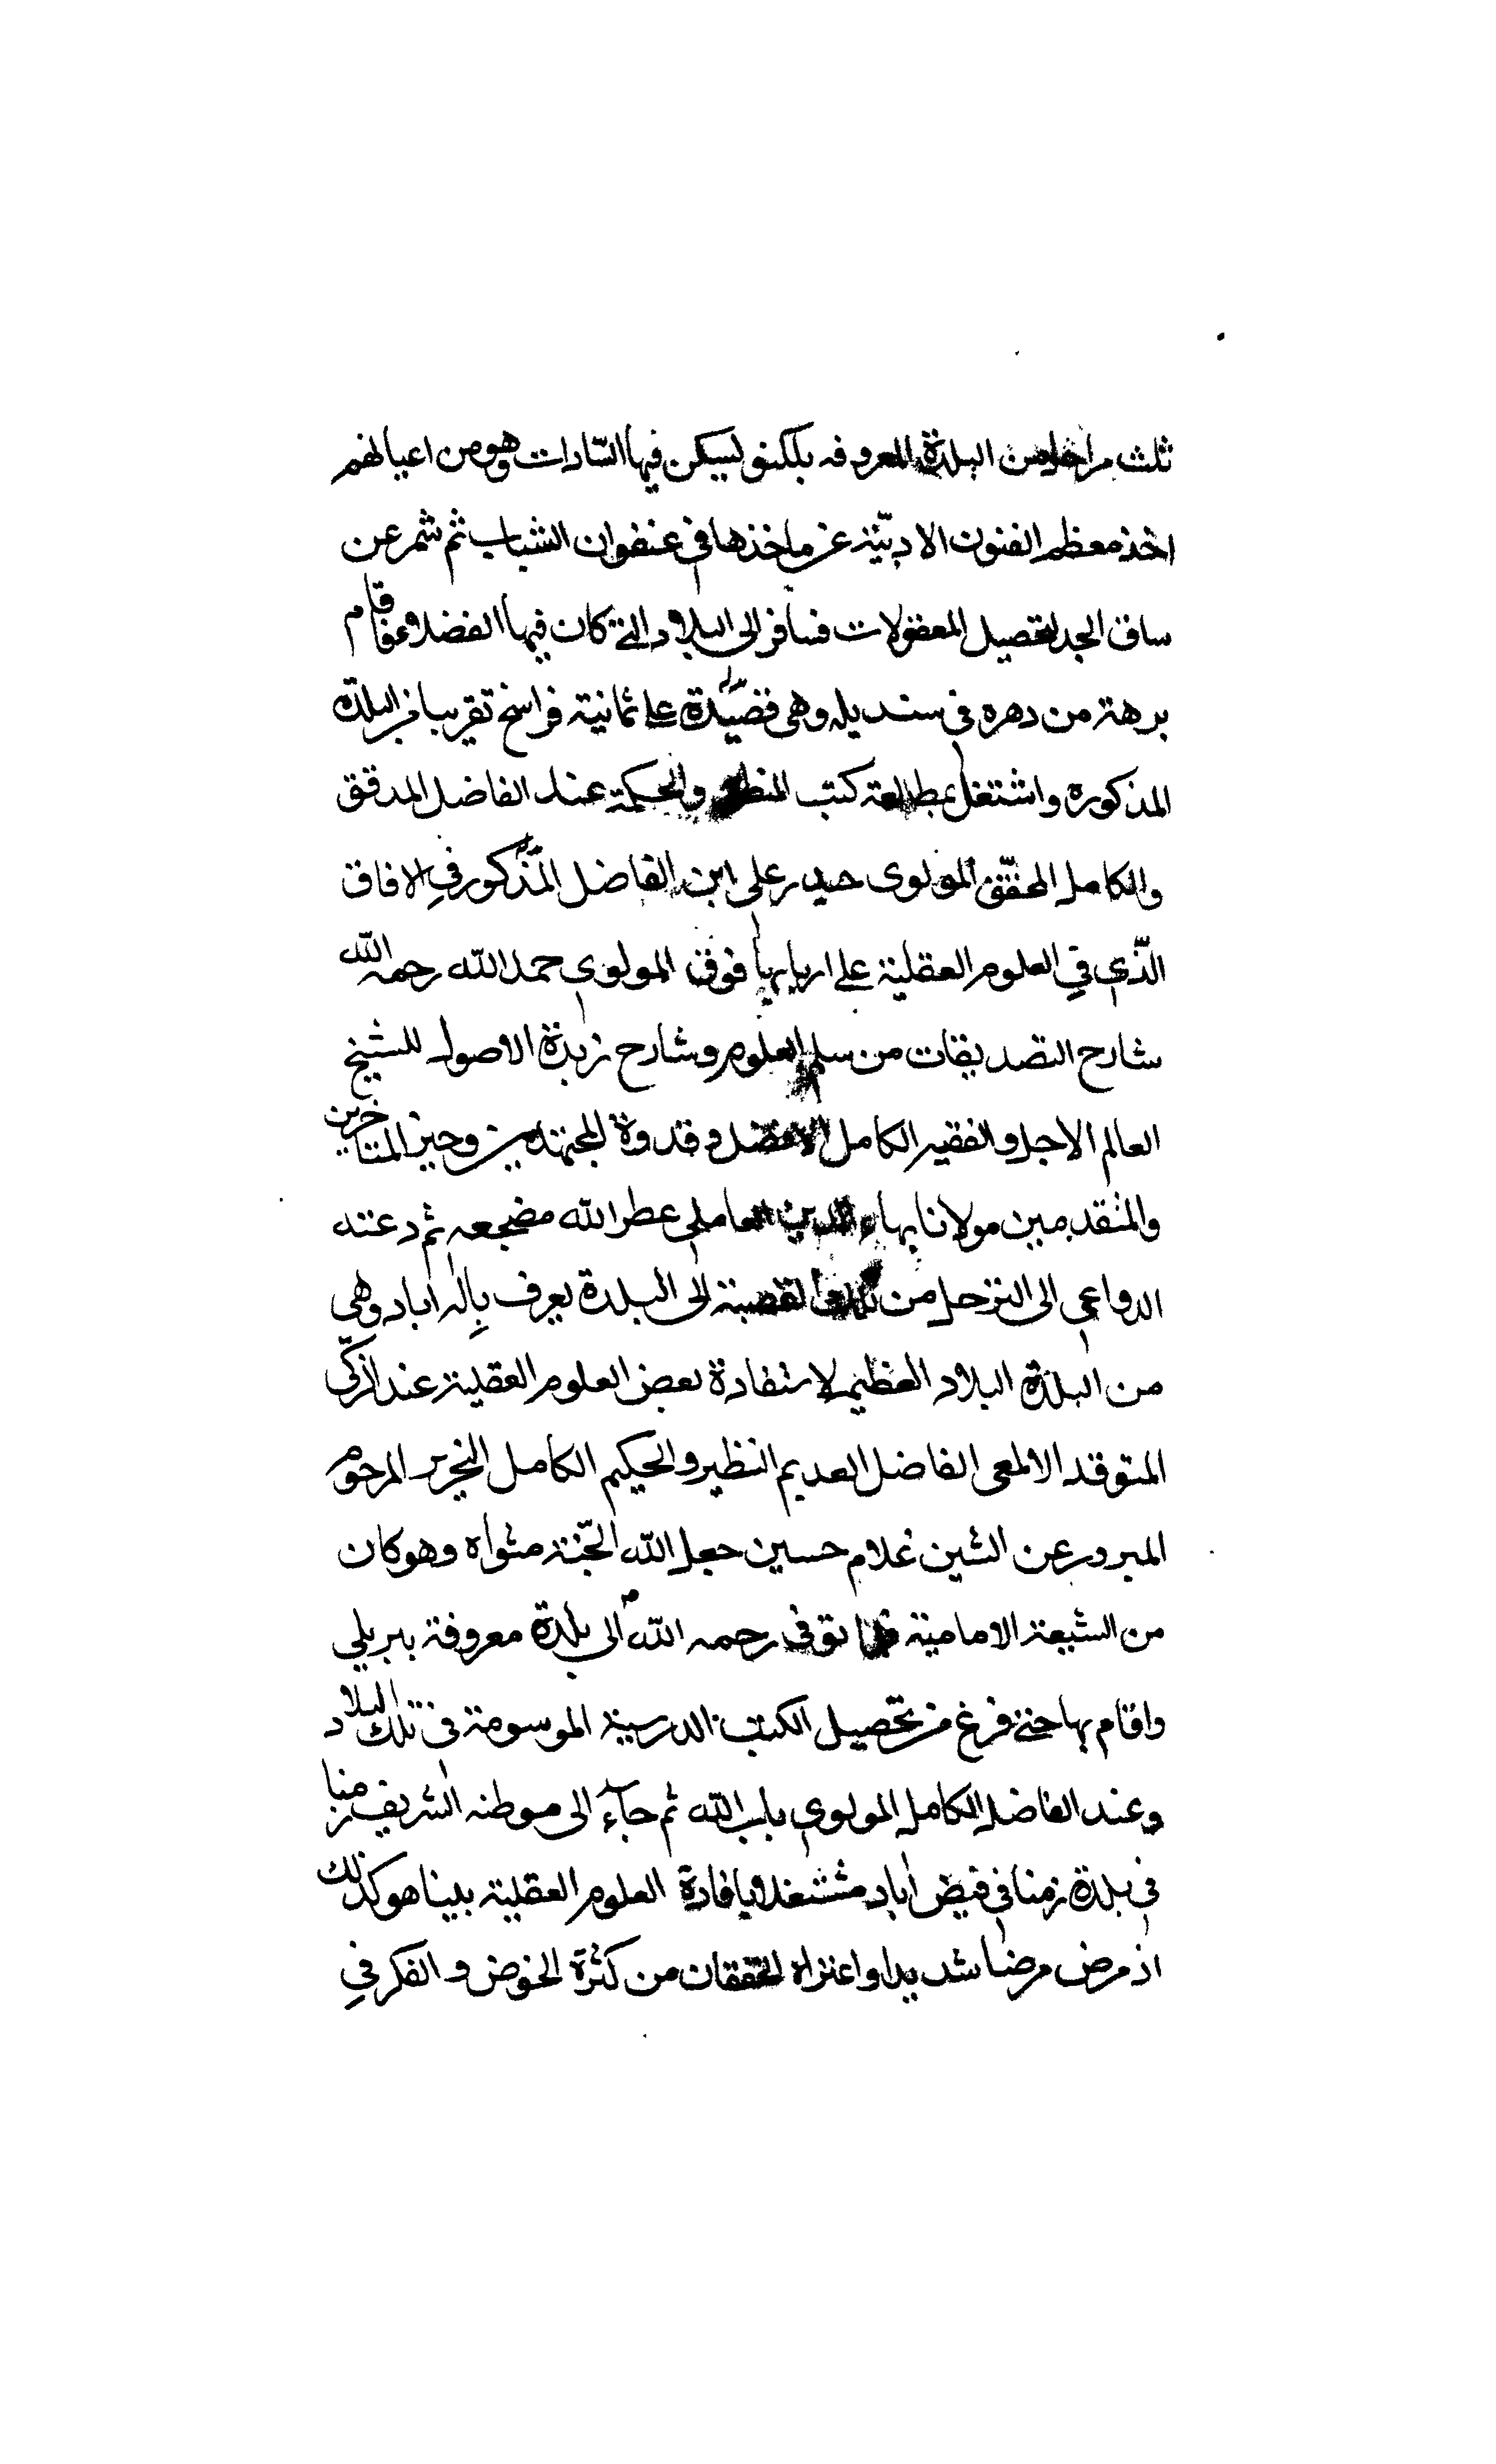 ثلث مراحل من البلدة المعروفه بلكنو ليسكن فيها السّادات وهو من اعيالهم
اخذ معظم الفنون الادبيّة عن ماخذها في عنفوان الشباب ثم شمر عن
ساق الجد لتحصيل المعقولات فسافر الى البلاد التي كان فيها الفضلاء فاقام
برهة من دهره في سنديله وهي قصيدة على ثمانية فراسخ تقريبا من البلدة
المذكوره واشتغل بمطالعة كتب المنطق والحكمة عند الفاضل المدقق
والكامل المحقّق المولوى حيدر على ابن الفاضل المذكور في الافاق
الذّي في العلوم العقلية على اربابها فوق المولوى حمد اللّه رحمه اللّه
شارح التصديقات من سلم العلوم وشارح زبدة الاصول للشيخ
العالم الاجل والفقيه الكامل الافضل وقدوة المجتهدين وحيز المتاخرين
والمتقدمين مولانا بهاء الدين العاملى عطر الله مضجعه ثم دعته
الدواعى الى الترحل من تلك القصبة الى البلدة يعرف بِاله اباد وهي
من البلدة البلاد العظيم لاستفادة بعض العلوم العقلية عند الزكّي
المتوقد الالمعى الفاضل العديم النظير والحكيم الكامل النحرير المرحوم
المبرور عن الشين غلام حسين جعل اللّه الجّنة مثواه وهو كان
من الشيعة الامامية فلما توفى رحمه اللّه الى بلدة معروفة ببريلي
واقام بها حتى فرغ من تحصيل الكتب الدرسية الموسومة في تلك البلاد
وعند الفاضل الكامل المولوى باب اللّه ثم جآء الى موطنه الشريف زمنا
في بلدة زمنا في فيض اباد مشتغلا بافادة العلوم العقلية بينا هو كذلك
اذ مرض مرضا شديدا واعتراه الخفقان من كثرة الخوض والفكر في